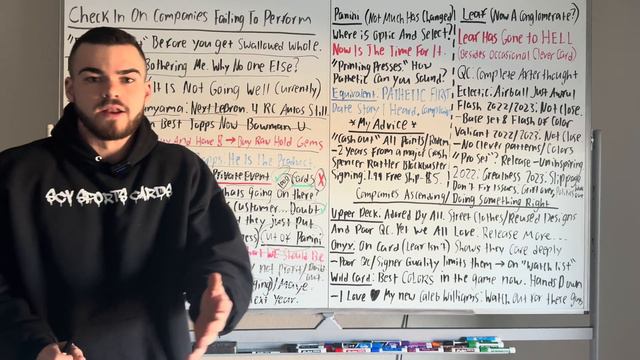 Check In On Companies Failing To Perform
Before you get Swallowed Whole.
Bothering Me. Why No One Else?
It Is Not Going Well Currently)
Next Lebron. 4 RC Autos Still
Best Topps Now Bowman U
And Have B → Buy Raw Hold Gems
He Is The Product
Private Event
Cards X
going on there?
Customer... Doubt
they Just put
Cut of Panini
We Should Be
not Profit/
Maye.
Next Year.
SCY SPORTS CARDS
Panini (Not Much Has Changed)
Where is Optic And Select?
Now Is The Time For It.
"Printing Presses" How
Pathetic Can you Sound?
Equivalent. PATHETIC FIRST
Date Story I Heard.
* My Advice *
"Cash Out" All Points/
-2 Years From a major Crash
Spencer Rattler Blockbuster
Signing. 1.99 Free Ship $5.
Leaf (Now A Conglomerate?)
Leaf Has Gone to HELL
(Besides Occasional Clever Card)
QC. Complete Afterthought
Eclectic. Airball Just Awful
Flash 2022/2023. Not Close.
- Base Set & Flash of Color
Valiant 2022/2023. Not Close
- No Clever Patterns/Colors
"Pro Set"? Release - Uninspiring
2022: Greatness 2023: Slippage
Don't Fix Issues.
Companies Ascending/Doing Something Right
Upper Deck. Adored By All. Street Clothes/Reused Designs
And Poor QC. Yet We All Love. Release More...
Onyx. On Card (Leaf Isn't) Shows they Care deeply
- Poor QC/Signer Quality limits them → on "Watch list"
Wild Card: Best COLORS in the game now. Hands Down
- I Love ♥ My new Caleb Williams. Watch Out For these Guys